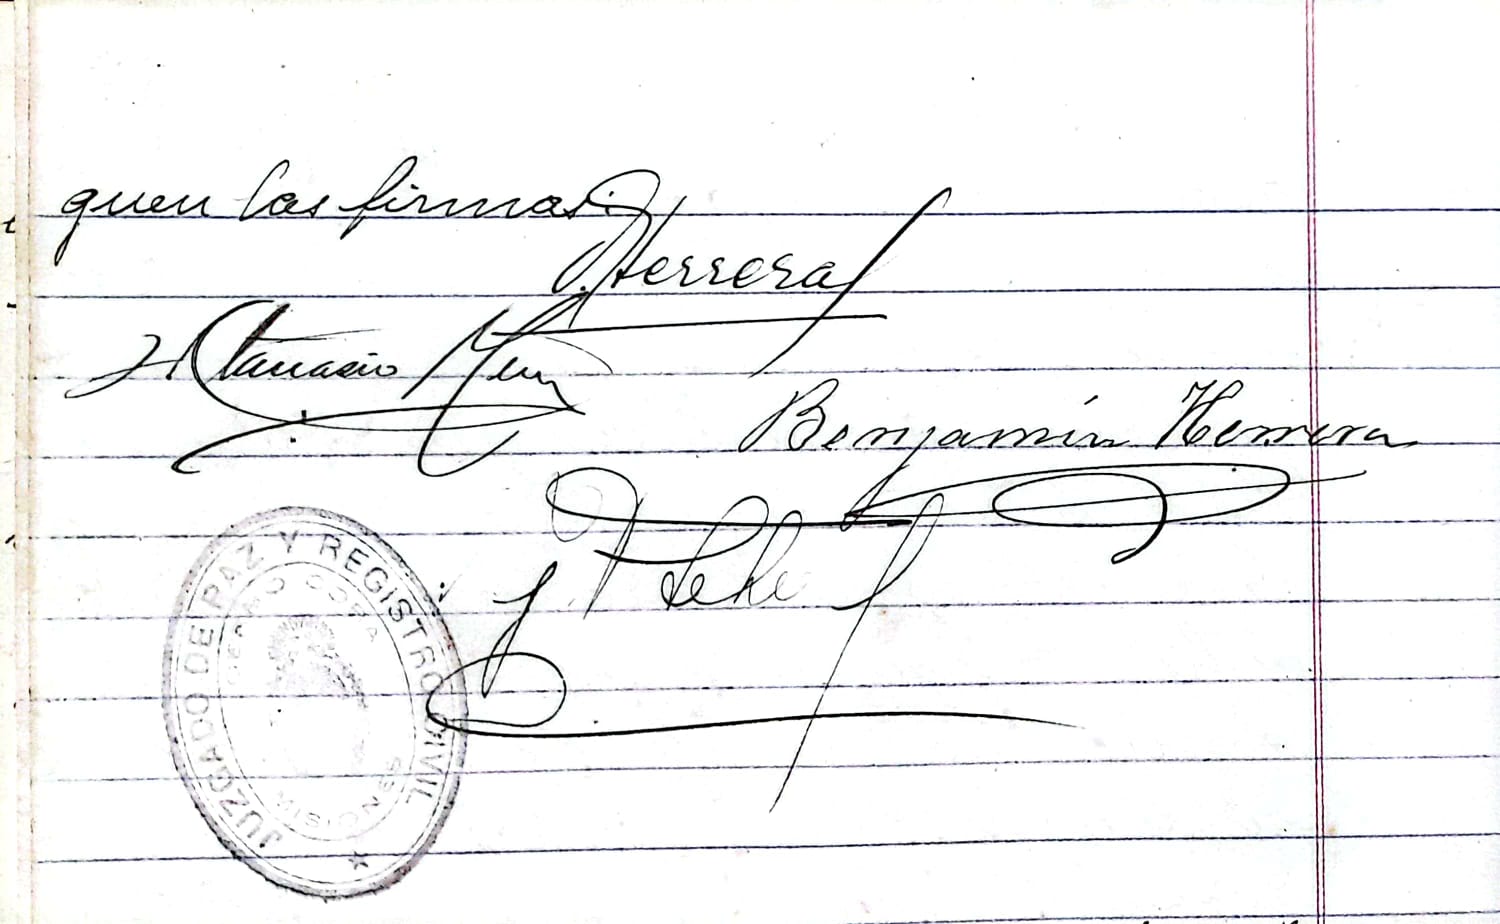 quen las firmas.
Herrera
Atanasio
Benjamín Herrera
JUZGADO DE PAZ Y REGISTRO CIVIL
MISIONES